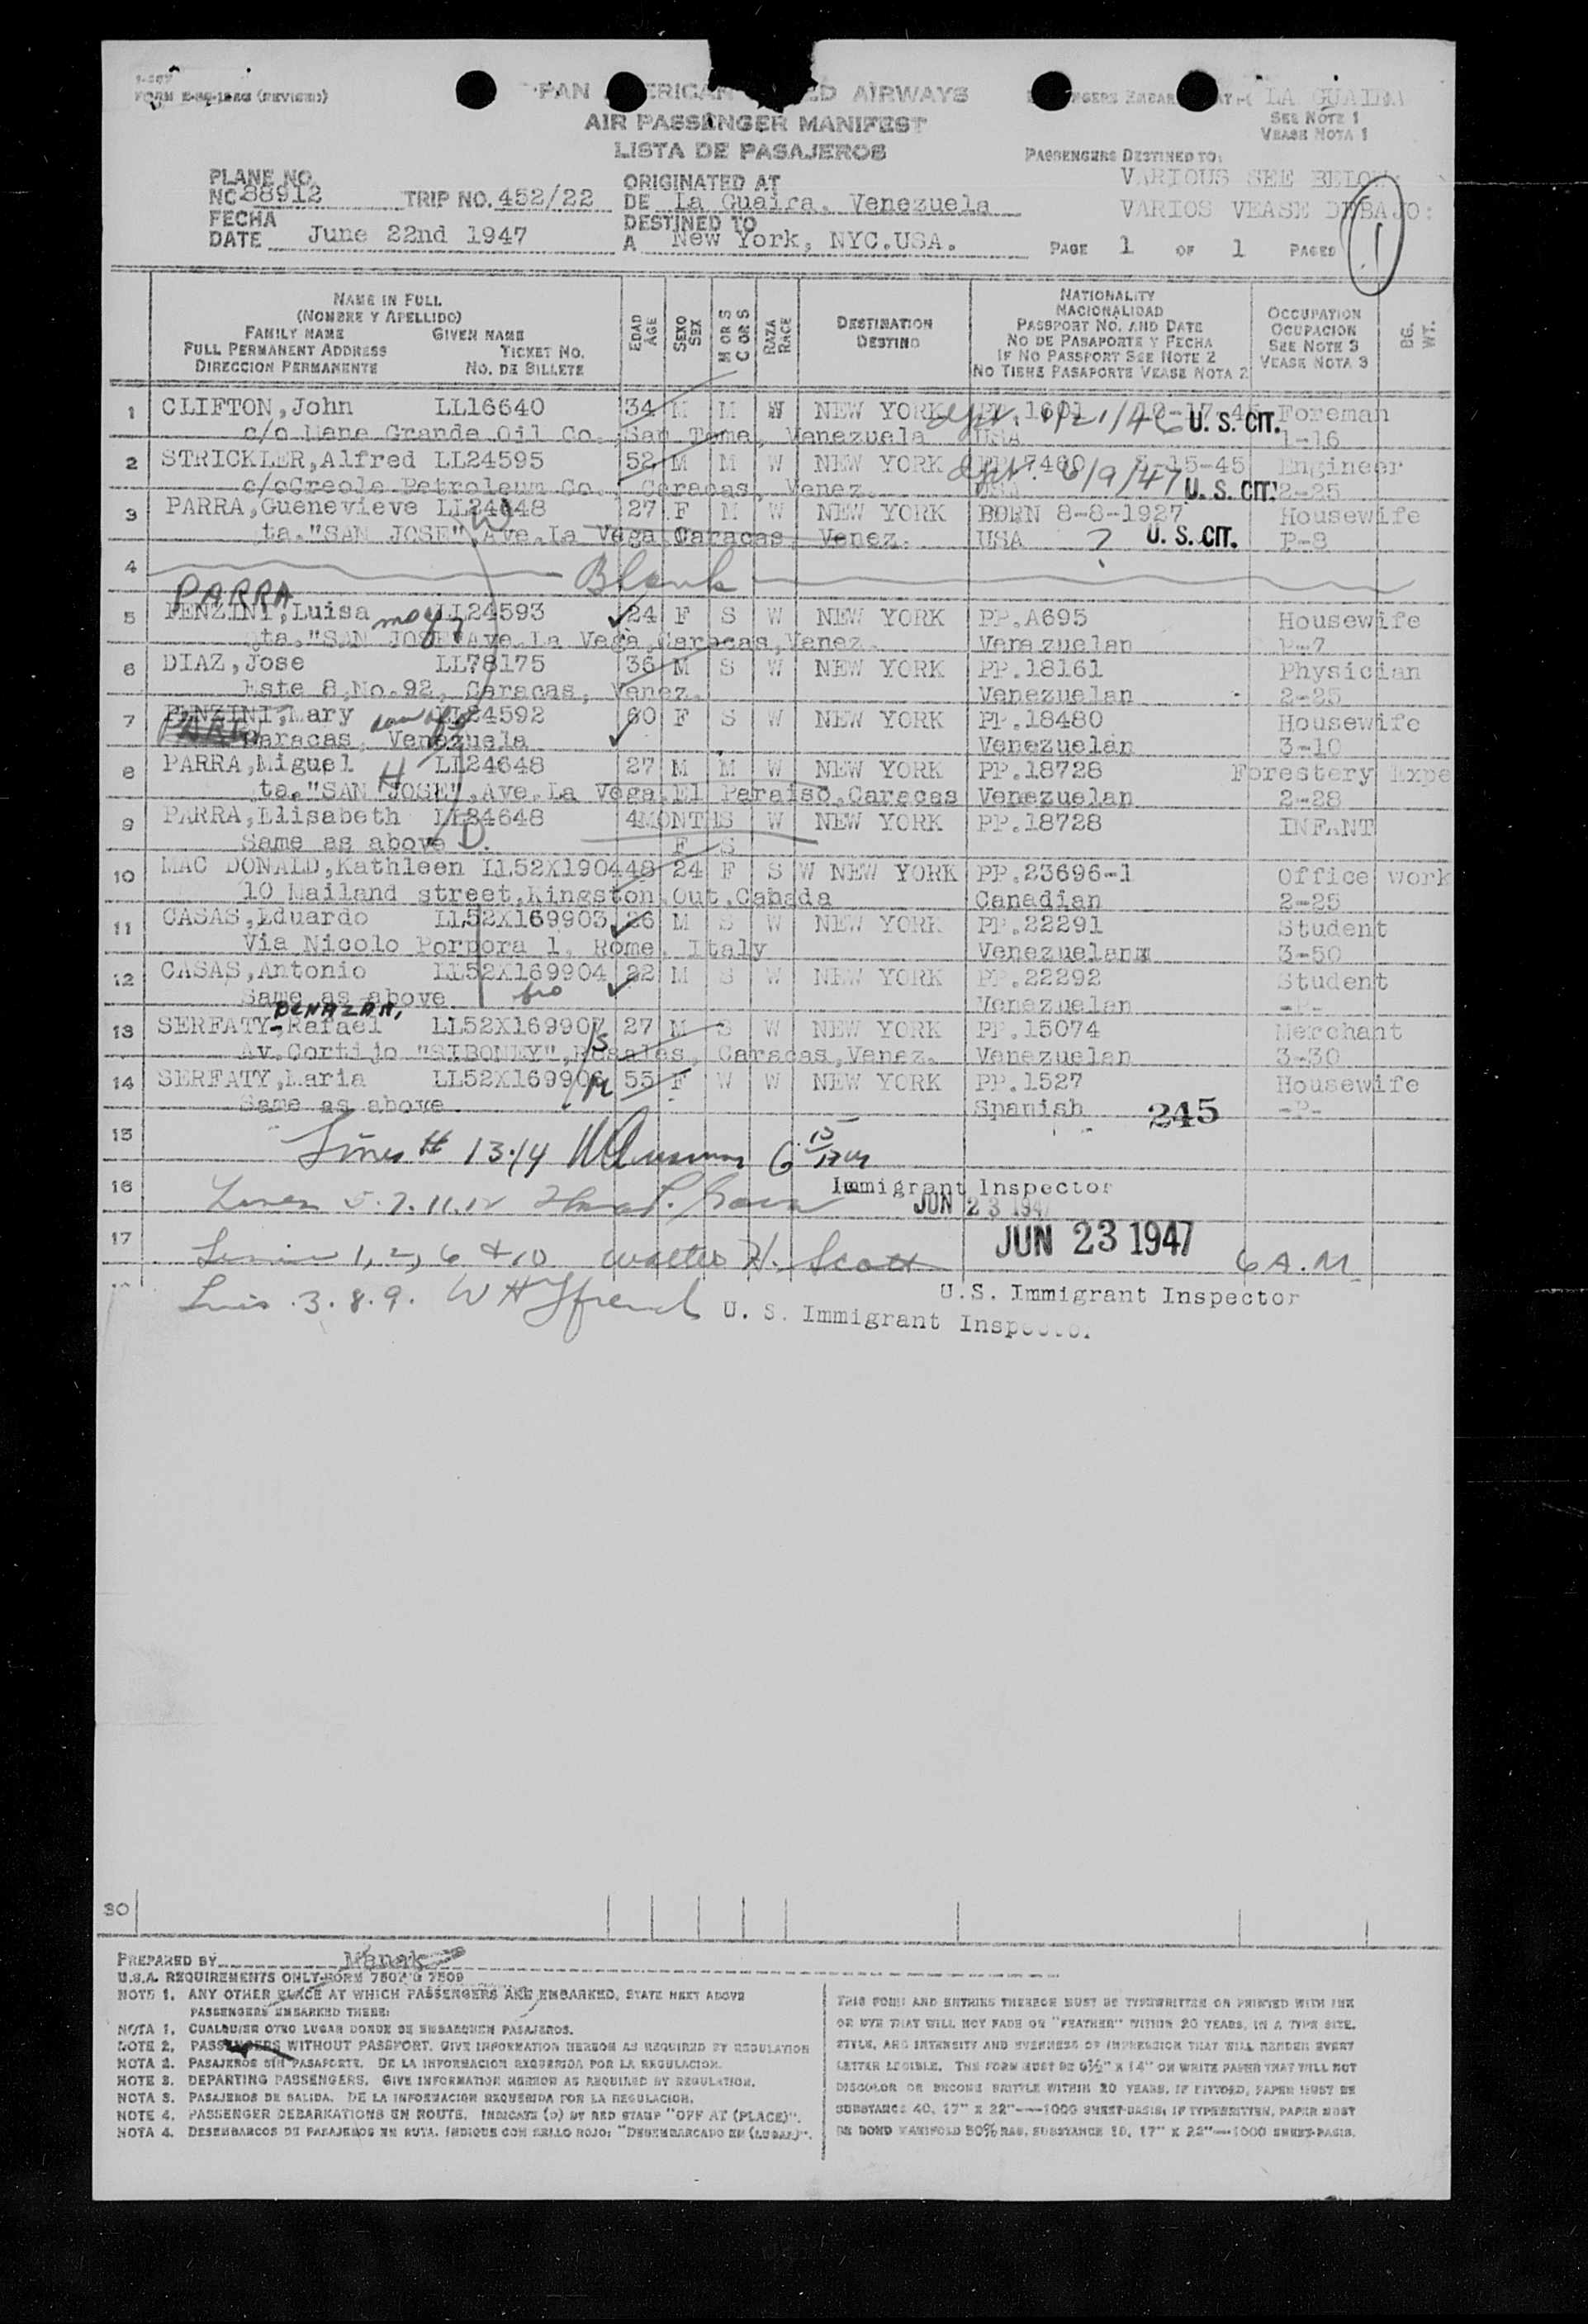 FORM E-86-1246 (REVISED)
PAN AMERICAN AIRWAYS
AIR PASSENGER MANIFEST
LISTA DE PASAJEROS
LA GUAIRA
SEE NOTE 1
VEASE NOTA 1
PASSENGERS DESTINED TO:
VARIOUS SEE BELOW:
VARIOS VEASE DEBAJO:
PLANE NO.
NC 88912 TRIP NO. 452/22
FECHA
DATE June 22nd 1947
ORIGINATED AT
DE La Guaira, Venezuela
DESTINED TO
A New York, NYC.USA.
PAGE 1 OF 1 PAGES
1
NAME IN FULL
(NOMBRE Y APELLIDO)
FAMILY NAME GIVEN NAME
FULL PERMANENT ADDRESS TICKET NO.
DIRECCION PERMANENTE NO. DE BILLETE
EDAD AGE
SEXO SEX
M OR S C OR S
RAZA RACE
DESTINATION
DESTINO
NATIONALITY
NACIONALIDAD
PASSPORT NO. AND DATE
NO DE PASAPORTE Y FECHA
IF NO PASSPORT SEE NOTE 2
NO TIENE PASAPORTE VEASE NOTA 2
OCCUPATION
OCUPACION
SEE NOTE 3
VEASE NOTA 3
BG. WT.
1 CLIFTON,John LL16640 34 M M W NEW YORK PP.1601 10-17-45 Foreman
c/o Mene Grande Oil Co. San Tome, Venezuela USA U. S. CIT. 1-16
2 STRICKLER,Alfred LL24595 52 M M W NEW YORK PP.7460 -15-45 Engineer
c/oCreole Petroleum Co., Caracas, Venez. USA 6/9/47 U. S. CIT. 2-25
3 PARRA,Guenevieve LL24648 27 F M W NEW YORK BORN 8-8-1927 Housewife
W
ta."SAN JOSE",Ave.La Vega Caracas, Venez. USA ? U. S. CIT. P-8
4 Blank
PARRA
5 PENZINI,Luisa LL24593 24 F S W NEW YORK PP.A695 Housewife
ta."SAN JOSE"Ave.La Vega,Caracas,Venez. Venezuelan P-7
6 DIAZ,Jose LL78175 36 M S W NEW YORK PP.18161 Physician
Este 8,No.92, Caracas, Venez. Venezuelan 2-25
7 PENZINI,Mary LL24592 60 F S W NEW YORK PP.18480 Housewife
Caracas, Venezuela Venezuelan 3-10
8 PARRA,Miguel H LL24648 27 M M W NEW YORK PP.18728 Forestery Expe
ta."SAN JOSE",Ave.La Vega.El Paraiso,Caracas Venezuelan 2-28
9 PARRA,Elisabeth LL24648 4MONTHS W NEW YORK PP.18728 INFANT
Same as above D. F S
10 MAC DONALD,Kathleen LL52X190448 24 F S W NEW YORK PP.23696-1 Office work
10 Mailand street,Kingston,Out,Canada Canadian 2-25
11 CASAS,Eduardo LL52X169903 26 M S W NEW YORK PP.22291 Student
Via Nicolo Porpora 1, Rome, Italy Venezuelan 3-50
12 CASAS,Antonio LL52X169904 22 M S W NEW YORK PP.22292 Student
Same as above bro Venezuelan -P-
BENAZAR,
13 SERFATY-Rafael LL52X169907 27 M S W NEW YORK PP.15074 Merchant
S
Av.Cortijo "SIBONEY",Rosales, Caracas,Venez. Venezuelan 3-30
14 SERFATY,Maria LL52X169906 55 F W W NEW YORK PP.1527 Housewife
M
Same as above Spanish 245 -P-
15 Lines # 13-14
16 Immigrant Inspector
Lines 5.7.11.12
JUN 23 1947
17 JUN 23 1947
Lines 1, 2, 6 & 10 Walter H. Scott 6 A.M.
U.S. Immigrant Inspector
Lines .3.8.9. W H Ffrench U. S. Immigrant Inspector
30
PREPARED BY
U.S.A. REQUIREMENTS ONLY-FORM 7507 G 7509
NOTE 1. ANY OTHER PLACE AT WHICH PASSENGERS ARE EMBARKED, STATE NEXT ABOVE
PASSENGERS EMBARKED THERE:
NOTA 1. CUALQUIER OTRO LUGAR DONDE SE EMBARQUEN PASAJEROS.
NOTE 2. PASSENGERS WITHOUT PASSPORT. GIVE INFORMATION HEREON AS REQUIRED BY REGULATION
NOTA 2. PASAJEROS SIN PASAPORTE. DE LA INFORMACION REQUERIDA POR LA REGULACION.
NOTE 3. DEPARTING PASSENGERS. GIVE INFORMATION HEREON AS REQUIRED BY REGULATION.
NOTA 3. PASAJEROS DE SALIDA. DE LA INFORMACION REQUERIDA POR LA REGULACION.
NOTE 4. PASSENGER DEBARKATIONS EN ROUTE. INDICATE (D) BY RED STAMP "OFF AT (PLACE)".
NOTA 4. DESEMBARCOS DE PASAJEROS EN RUTA. INDIQUE CON SELLO ROJO: "DESEMBARCADO EN (LUGAR)".
THIS FORM AND ENTRIES THEREON MUST BE TYPEWRITTEN OR PRINTED WITH INK
OR DYE THAT WILL NOT FADE OR "FEATHER" WITHIN 20 YEARS, IN A TYPE SIZE,
STYLE, AND INTENSITY AND EVENNESS OF IMPRESSION THAT WILL RENDER EVERY
LETTER LEGIBLE. THE FORM MUST BE 8½" X 14" ON WHITE PAPER THAT WILL NOT
DISCOLOR OR BECOME BRITTLE WITHIN 20 YEARS. IF PRINTED, PAPER MUST BE
SUBSTANCE 40, 17" X 22"—1000 SHEET-BASIS; IF TYPEWRITTEN, PAPER MUST
BE BOND MANIFOLD 50% RAG, SUBSTANCE 18, 17" X 22"—1000 SHEET-BASIS.